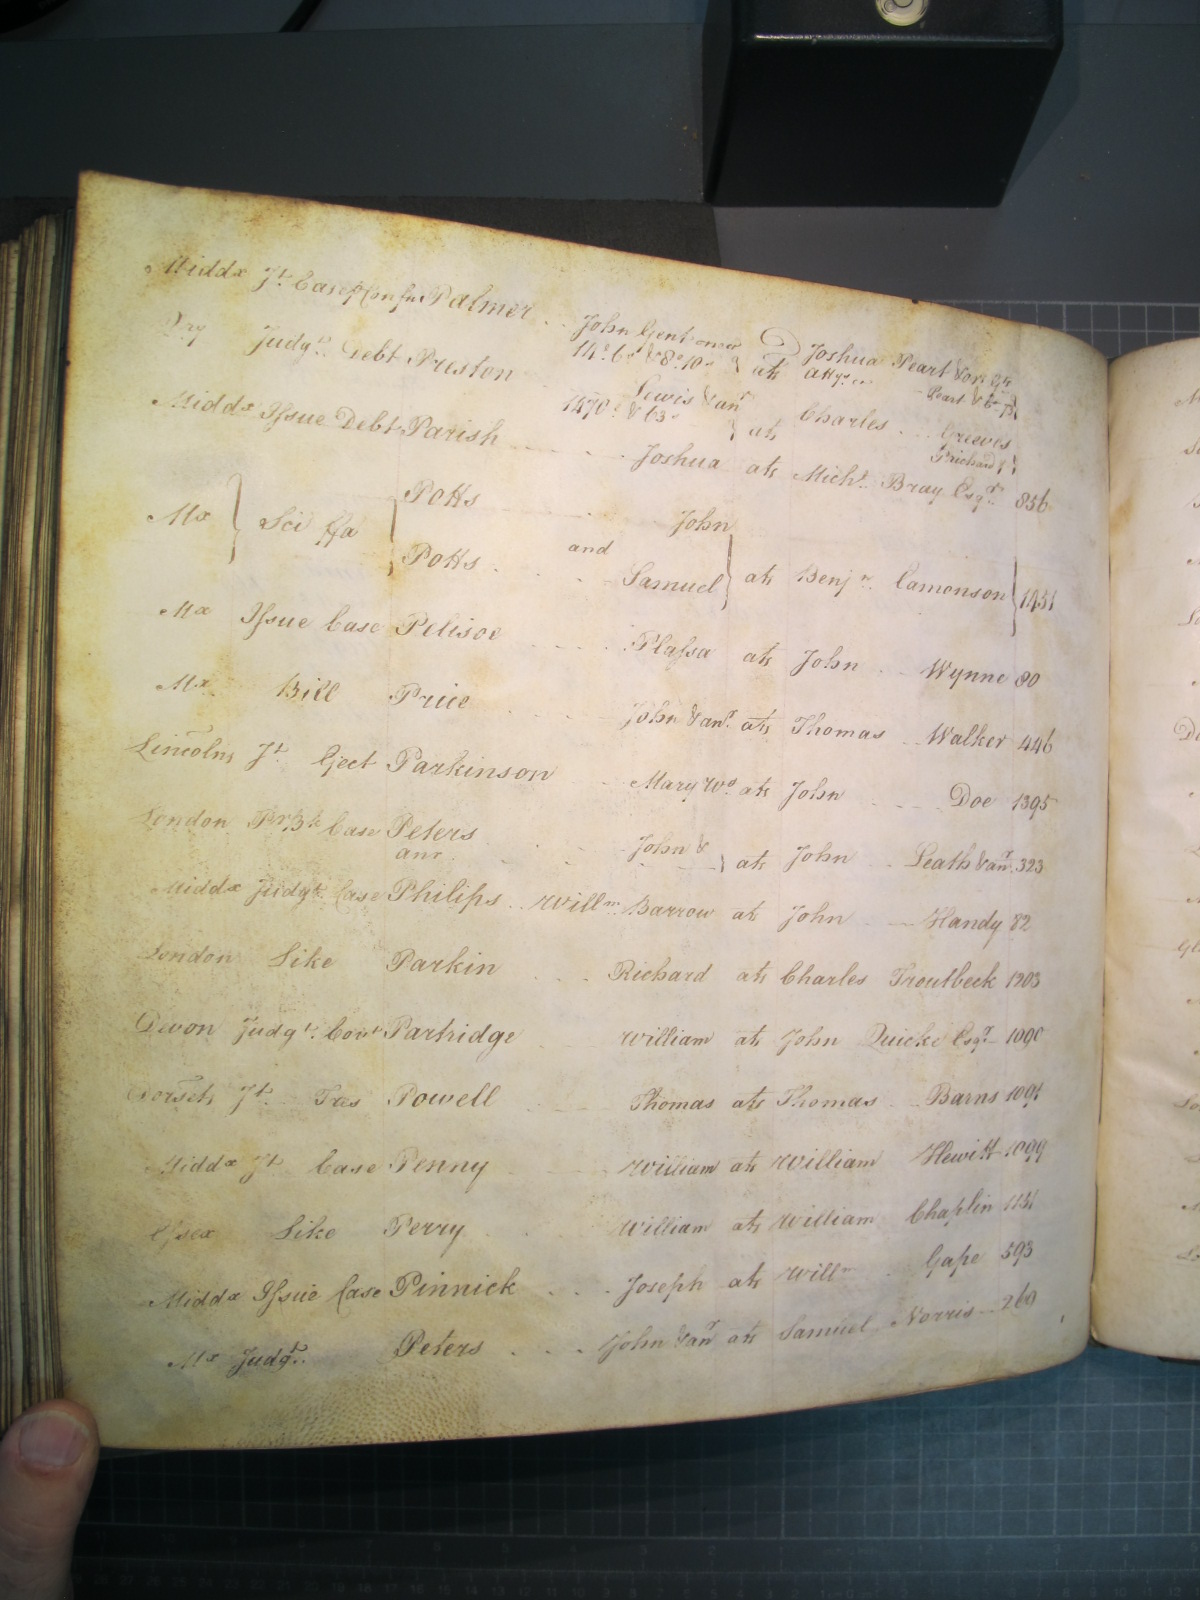 Middx Jt. Case Palmer . . John Gent one &c D Joshua Peart &ors
Judgt. Debt Preston Lewis &anr ats Charles . . . Greeves
Middx Issue Debt Parish . . . . Joshua ats Michl. Bray Esqr. 856
Mx Sci ffa Potts . . John
and
Potts . . . . Samuel ats Benjn. Camonson 1451
Mx Issue Case Pelisoe . . . . Plassa ats John . . Wynne 80
Mx Bill Price . . . . John &anr. ats Thomas . . Walker 446
Lincoln Jt. Eject Parkinson . . Mary Wd. ats John . . . . Doe 1395
London Case Peters . . . . John & ats John . . Leath &anr. 323
anr
Middx Judgt. Case Philips . . Willm. Barrow ats John . . Handy 82
London Like Parkin . . . Richard ats Charles Troutbeck 1203
Devon Judgt. Covt Partridge . . William ats John Quicke Esqr. 1090
Dorset Jt. Tres Powell . . . Thomas ats Thomas . . Barns 1091
Middx Jt. Case Penny . . . William ats William Hewitt 1099
Essex Like Perry . . . William ats William Chaplin 1131
Middx Issue Case Pinnick . . . Joseph ats Willm . . Gape 593
Mx Judgt. Peters . . . John &anr ats Samuel Norris . . 260